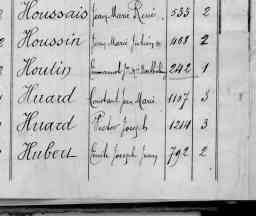 Houssais Jean Marie René 533 2
Houssin Jean Marie Julien 408 2
Houlin Emmanuel 242 1
Huard Constant Jean Marie 1107 3
Huard Victor Joseph 1214 3
Hubert Emile Joseph Jean 792 2